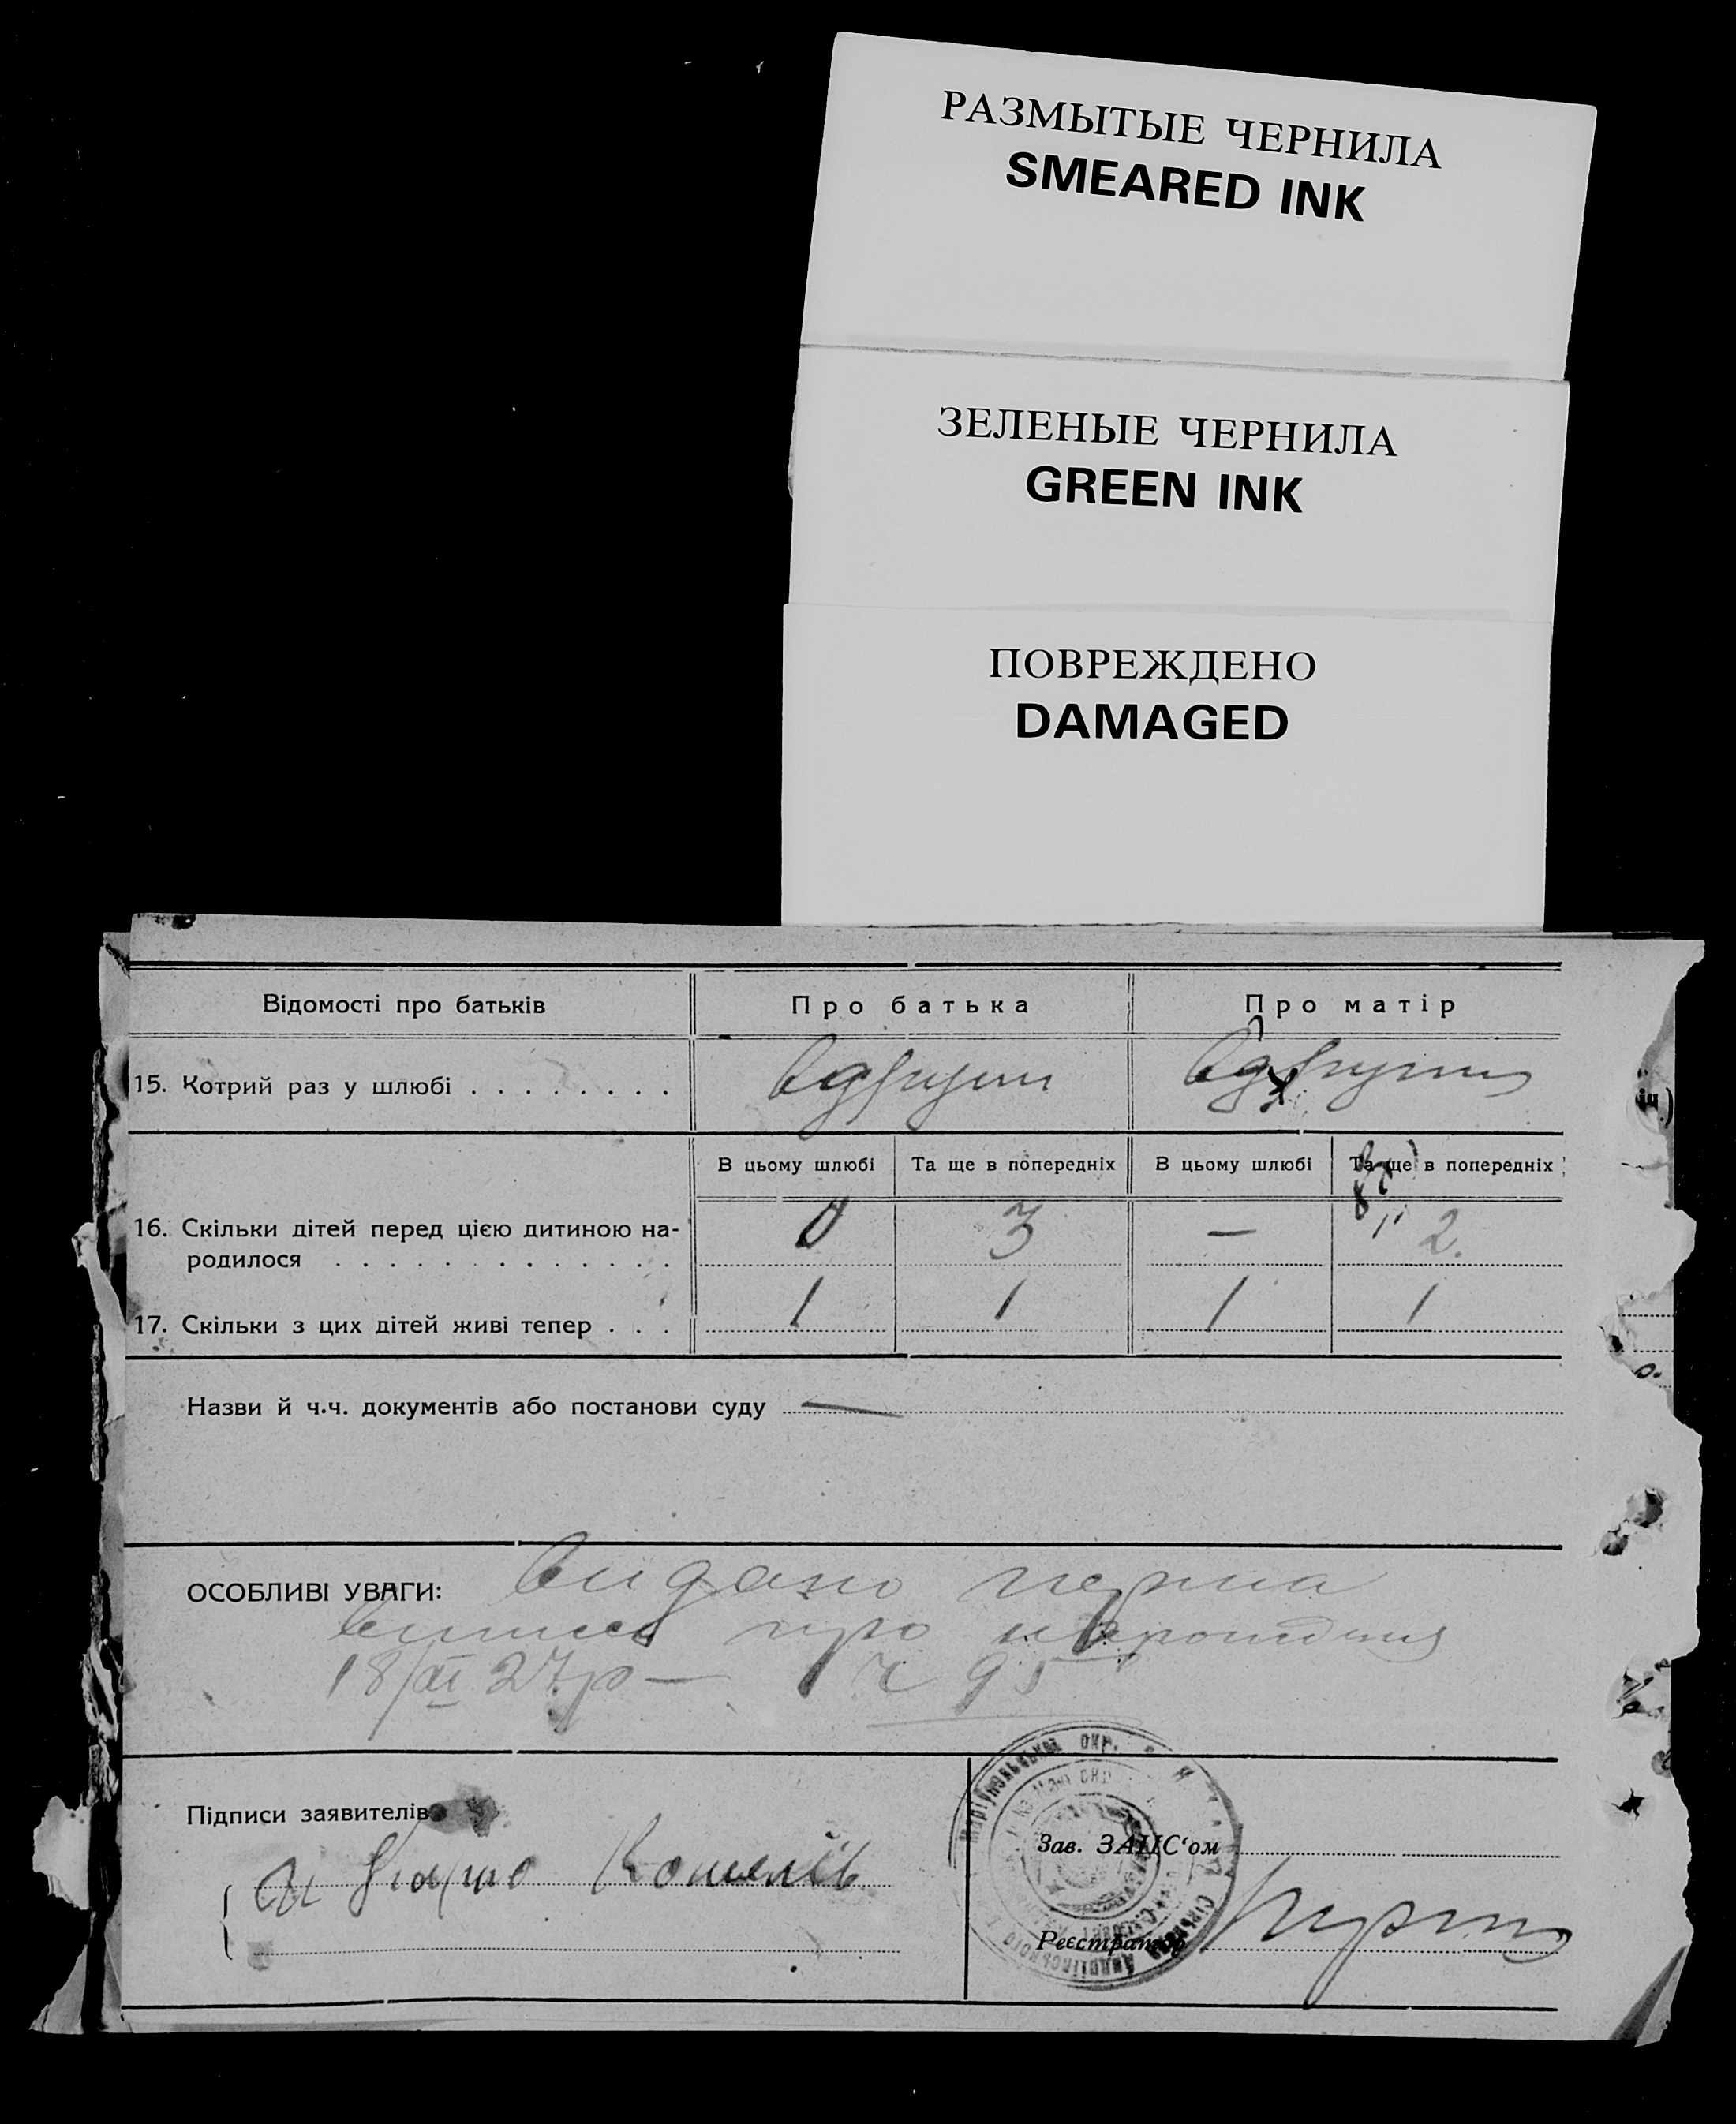 РАЗМЫТЫЕ ЧЕРНИЛА
SMEARED INK
ЗЕЛЕНЫЕ ЧЕРНИЛА
GREEN INK
ПОВРЕЖДЕНО
DAMAGED
Відомості про батьків Про батька Про матір
15. Котрий раз у шлюбі . . . . . . . . вдруги вдруги
В цьому шлюбі Та ще в попередніх В цьому шлюбі Та ще в попередніх
16. Скільки дітей перед цією дитиною на-
родилося . . . . . . . . . . . . . 0 3 — 2.
17. Скільки з цих дітей живі тепер . . . 1 1 1 1
Назви й ч.ч. документів або постанови суду —
ОСОБЛИВІ УВАГИ: видано перша
випись про народження
18/XI 27р — ч 95
Підписи заявителів
Зав. ЗАЦС‘ом
Реєстратор